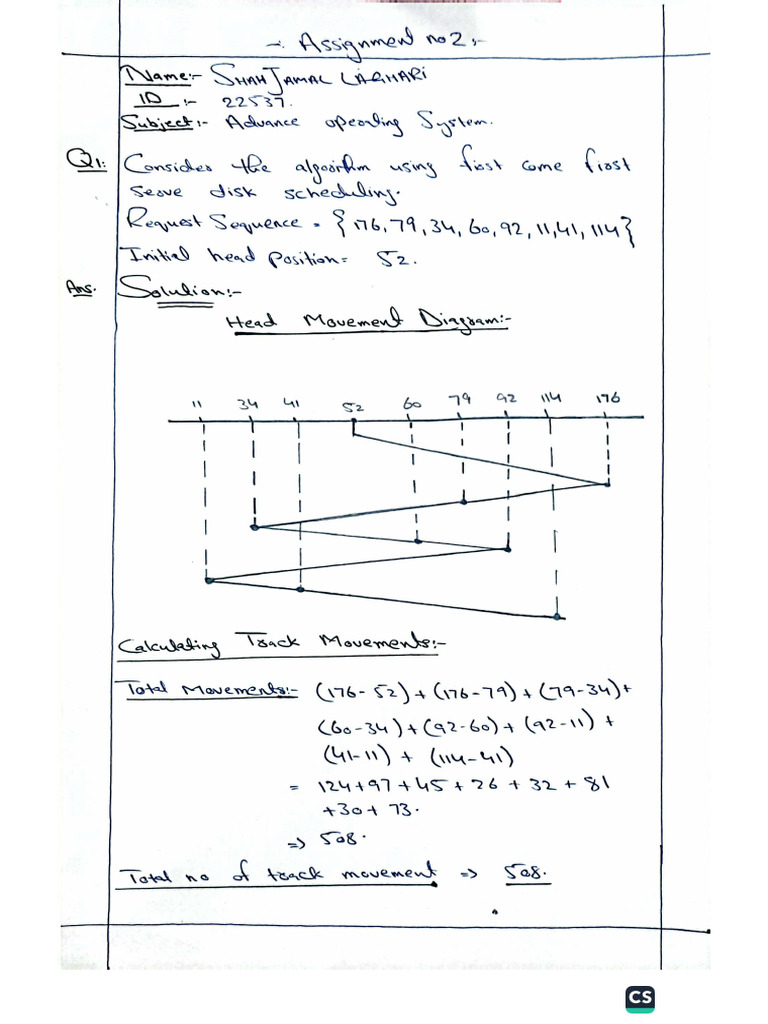 -: Assignment no 2:-
Name:- SHAH JAMAL LAGHARI
ID :- 22537.
Subject:- Advance operating System.
Q1: Consider the algorithm using first come first
serve disk scheduling.
Request Sequence = {176, 79, 34, 60, 92, 11, 41, 114}
Initial head position = 52.
Ans. Solution:-
Head Movement Diagram:-
11 34 41 52 60 79 92 114 176
Calculating Track Movements:-
Total Movements:- (176-52)+(176-79)+(79-34)+
(60-34)+(92-60)+(92-11)+
(41-11)+(114-41)
= 124+97+45+26+32+81
+30+73.
=> 508.
Total no of track movement => 508.
CS